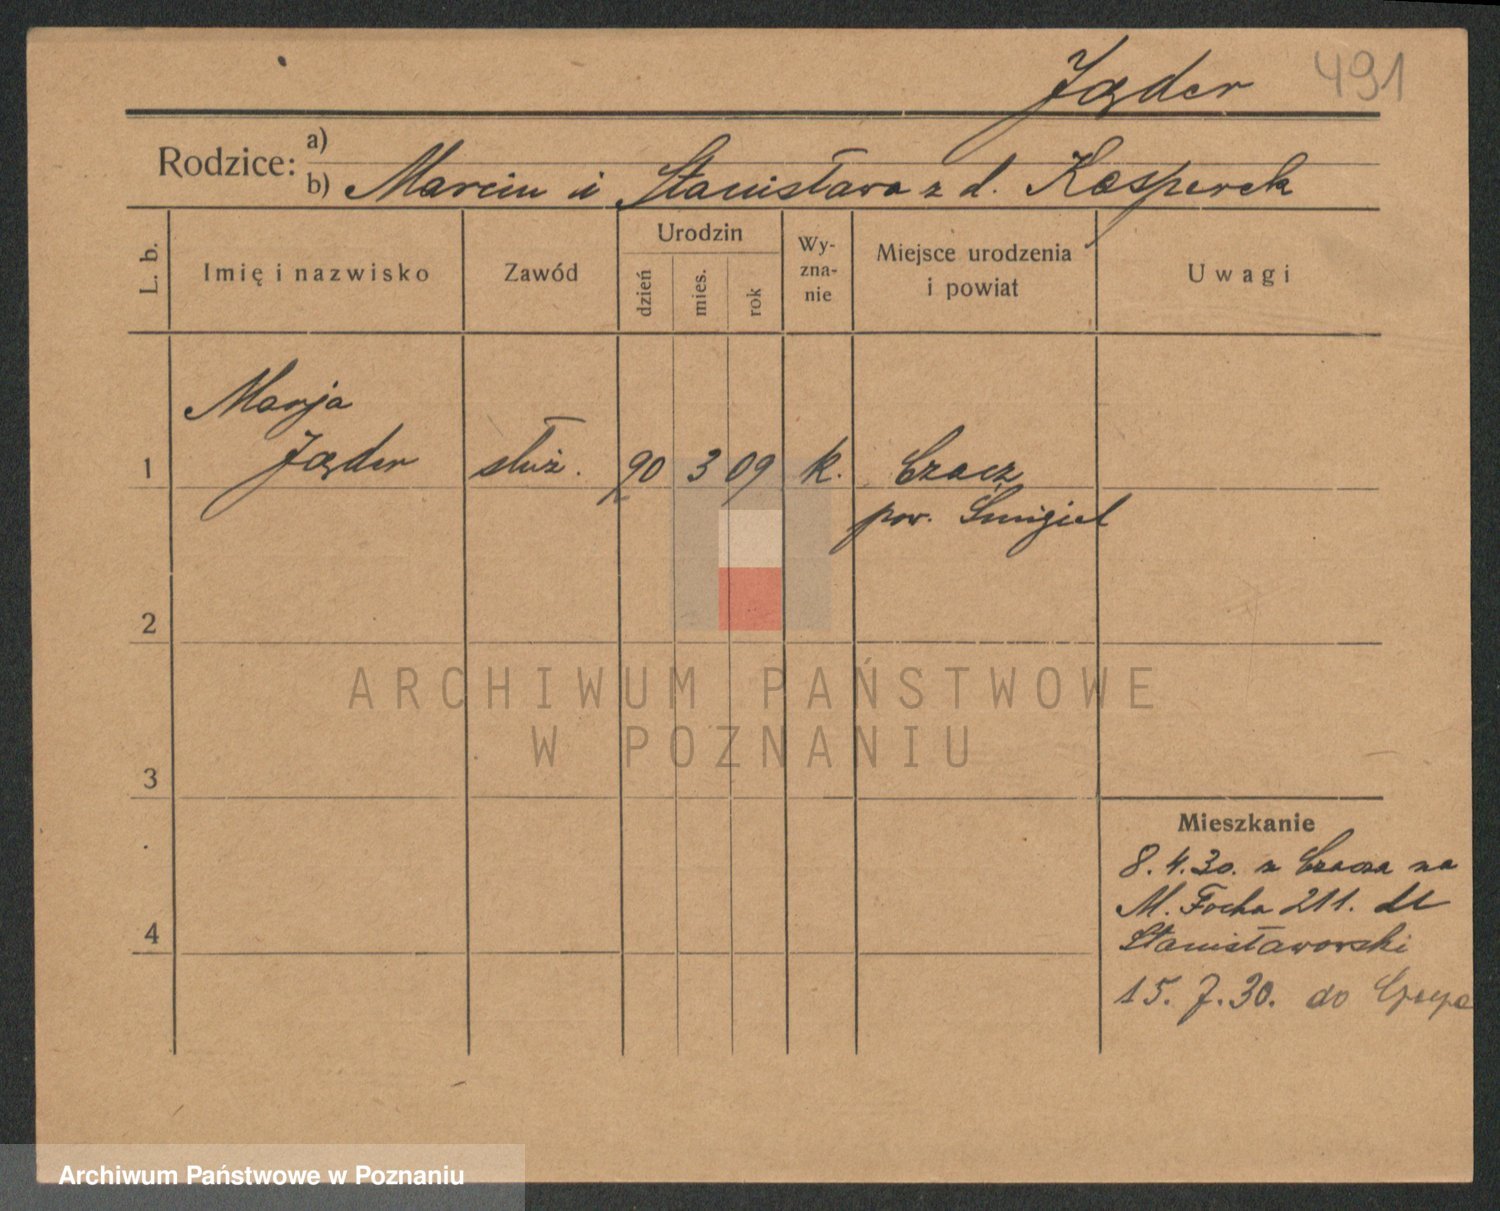 Jąder 491
Rodzice: a)
b) Marcin i Stanisława z d. Kasperek
L. b.
Imię i nazwisko
Zawód
Urodzin
dzień
mies.
rok
Wy-
zna-
nie
Miejsce urodzenia
i powiat
Uwagi
Marja
1 Jąder służ. 20 3 09 k. Czacz
pow. Śmigiel
2
3
4
Mieszkanie
8.4.30. z Czacza na
M. Focha 211. dt
Stanisławorski
15.7.30. do
ARCHIWUM PAŃSTWOWE
W POZNANIU
Archiwum Państwowe w Poznaniu